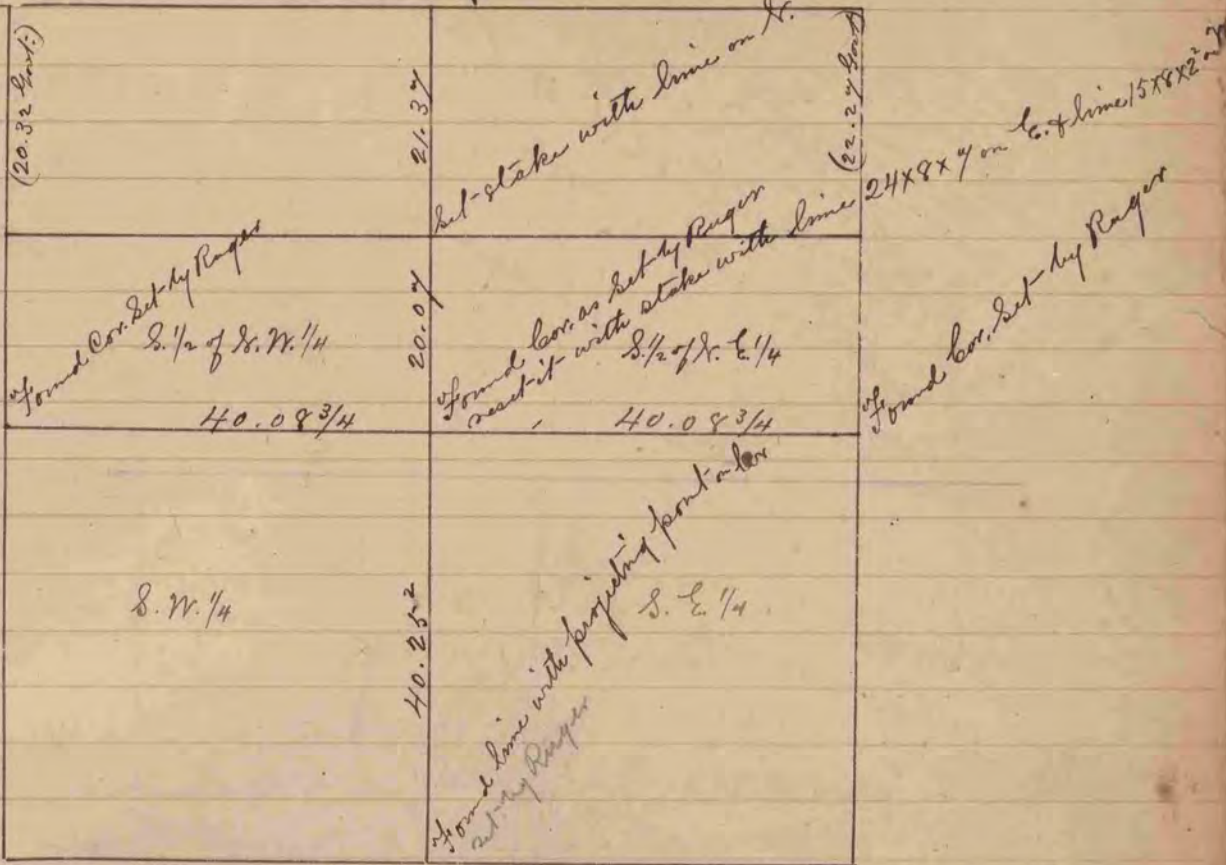 (20.32 Govt.)
21.37
Set stake with lime on N.
(22.27 Govt)
Found Cor. Set by Ruger
S. 1/2 of N. W. 1/4
40.08 3/4
20.07
Found Cor. as set by Ruger
reset it with stake with lime 24x8x7 on E. & lime 15x8x2² on
S. 1/2 of N. E. 1/4
40.08 3/4
Found Cor. Set by Ruger
S. W. 1/4
40.25²
Found lime with projecting point on Cor
set by Ruger
S. E. 1/4